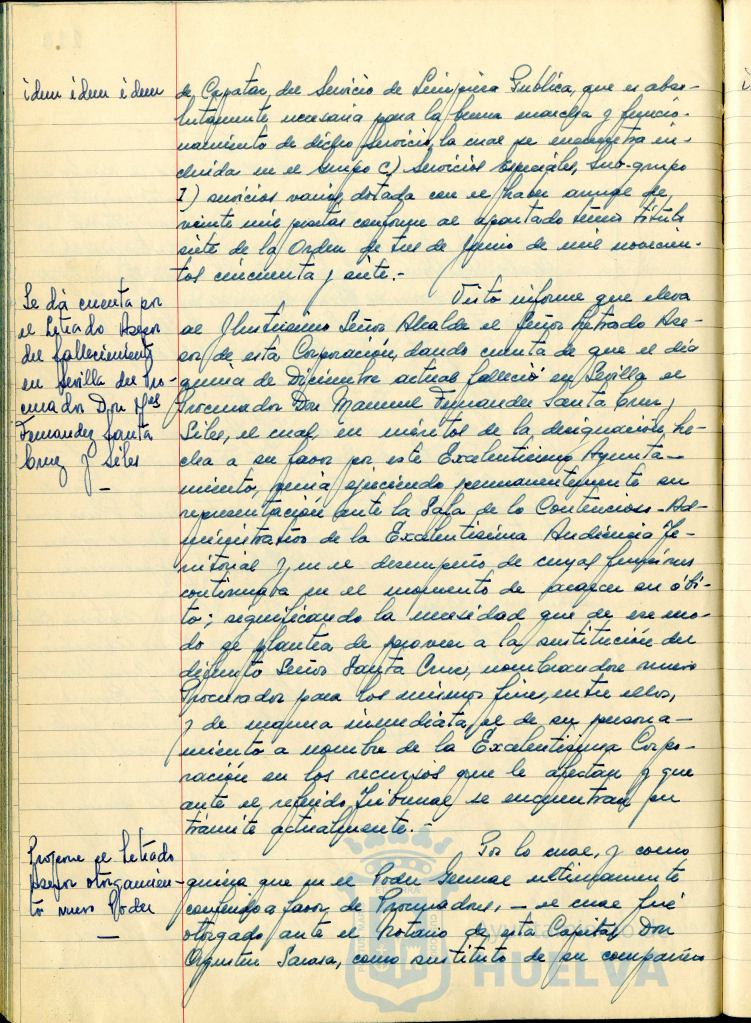 idem idem idem
de Capataz del Servicio de Limpieza Publica, que es abso-
lutamente necesaria para la buena marcha y funcio-
namiento de dicho Servicio, la cual se encuentra in-
cluida en el Grupo C) Servicios Especiales, Sub-grupo
I) servicios varios, dotada con el haber anual de
veinte mil pesetas conforme al apartado
siete de la Orden de tres de Junio de mil novecien-
tos cincuenta y siete.-
Se dá cuenta por
el Letrado Asesor
del fallecimiento
en Sevilla del Pro-
curador Don Mel
Fernandez Santa
Cruz y Siles
—
Visto informe que eleva
al Ilustrisimo Señor Alcalde el Señor Letrado Ase-
sor de esta Corporación, dando cuenta de que el dia
quince de Diciembre actual falleció en Sevilla el
Procurador Don Manuel Fernandez Santa Cruz y
Siles, el cual, en méritos de la designación he-
cha a su favor por este Excelentisimo Ayunta-
miento, venia ejerciendo permanentemente su
representación ante la Sala de lo Contencioso-Ad-
ministrativo de la Excelentisima Audiencia Te-
rritorial y en el desempeño de cuyas funciones
continuaba en el momento de acaecer su óbi-
to; significando la necesidad que de ese mo-
do se plantea de proveer a la sustitución del
difunto Señor Santa Cruz, nombrandose nuevo
Procurador para los mismos fines, entre ellos,
y de manera inmediata, el de su persona-
miento a nombre de la Excelentisima Corpo-
ración en los recursos que le afectan y que
ante el referido Tribunal se encuentran en
trámite actualmente.-
Propone el Letrado
Asesor otorgamien-
to nuevo Poder
—
Por lo cual, y como
quiera que en el Poder General ultimamente
conferido a favor de Procuradores, - el cual fué
otorgado ante el Notario de esta Capital Don
Agustin Sarasa, como sustituto de su compañero
HUELVA